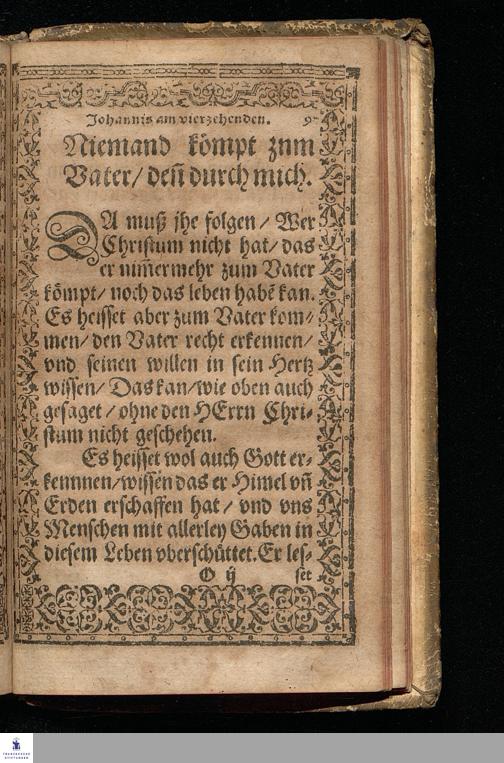 Johannis am vierzehenden.
Niemand kömpt zum
Vater/ deñ durch mich.
DA muß jhe folgen/ Wer
Christum nicht hat/ das
er nim̃ermehr zum Vater
kömpt/ noch das leben habẽ kan.
Es heisset aber zum Vater kom⸗
men/ den Vater recht erkennen/
vnd seinen willen in sein Hertz
wissen/ Das kan/ wie oben auch
gesaget/ ohne den HErrn Chri⸗
stum nicht geschehen.
Es heisset wol auch Gott er⸗
kennnen/ wissen das er Himel vñ
Erden erschaffen hat/ vnd vns
Menschen mit allerley Gaben in
diesem Leben vberschüttet. Er les⸗
O ij set
FRANCKESCHE
STIFTUNGEN